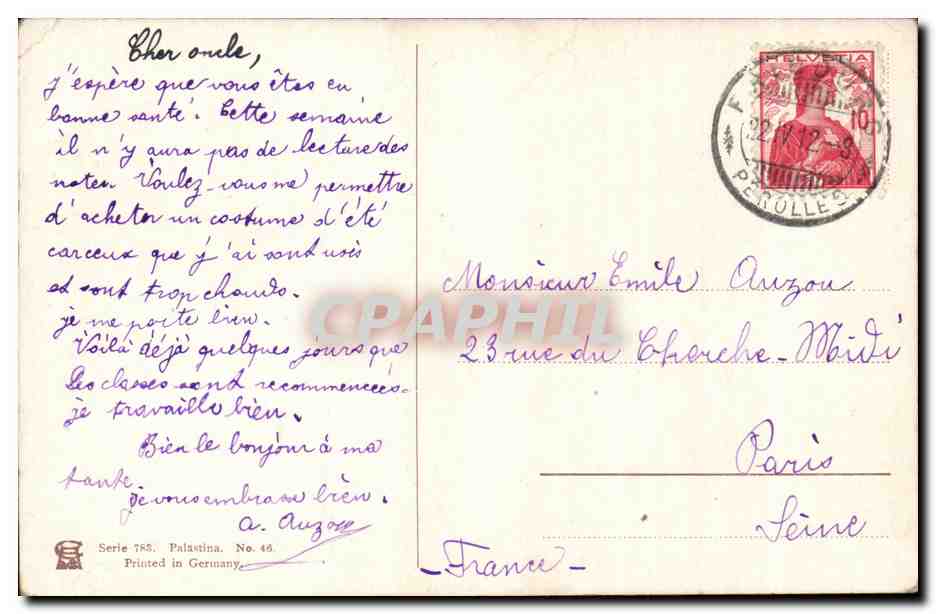 Cher oncle,
j'espère que vous êtes en
bonne santé. Cette semaine
il n'y aura pas de lecture des
notes. Voulez-vous me permettre
d'acheter un costume d'été
car ceux que j'ai sont usés
et sont trop chauds.
je me porte bien.
Voilà déjà quelques jours que
les classes sont recommencées.
je travaille bien.
Bien le bonjour à ma
tante.
Je vous embrasse bien.
A. Auzou
Serie 783. Palästina. No. 46.
Printed in Germany.
HELVETIA
10
22 IV 12 - 9
PEROLLES
Monsieur Emile Auzou
23 rue du Cherche-Midi
Paris
Seine
- France -
CPAPHIL